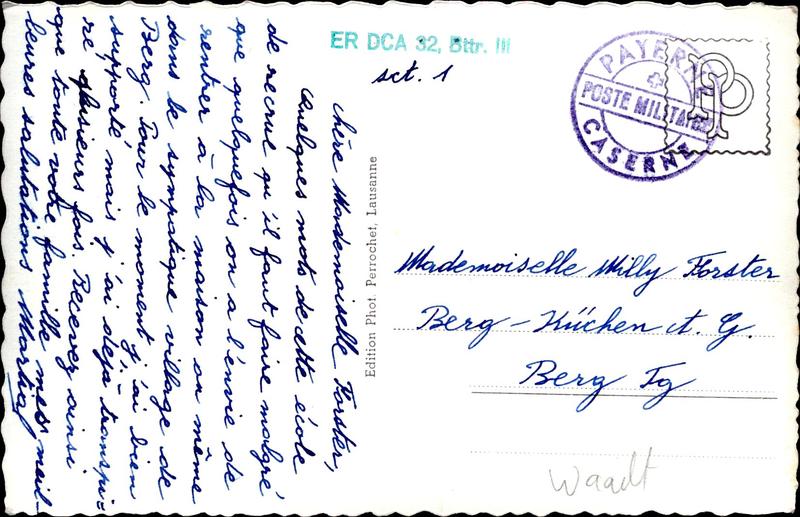 ER DCA 32, Bttr. III
sct. 1
PAYERNE
POSTE MILITAIRE
CASERNE
Chère Mademoiselle Forster,
Quelques mots de cette école
de recrue qu'il faut faire malgré
que quelquefois on a l'envie de
rentrer à la maison ou même
dans le sympatique village de
Berg. Pour le moment j'ai bien
supporté mais j'ai dejà transpi=
ré plusieurs fois. Recevez ainsi
que toute votre famille mes meil-
leures salutations Martial
Edition Phot. Perrochet, Lausanne
Mademoiselle Milly Forster
Berg - Küchen A. G.
Berg Tg
Waadt